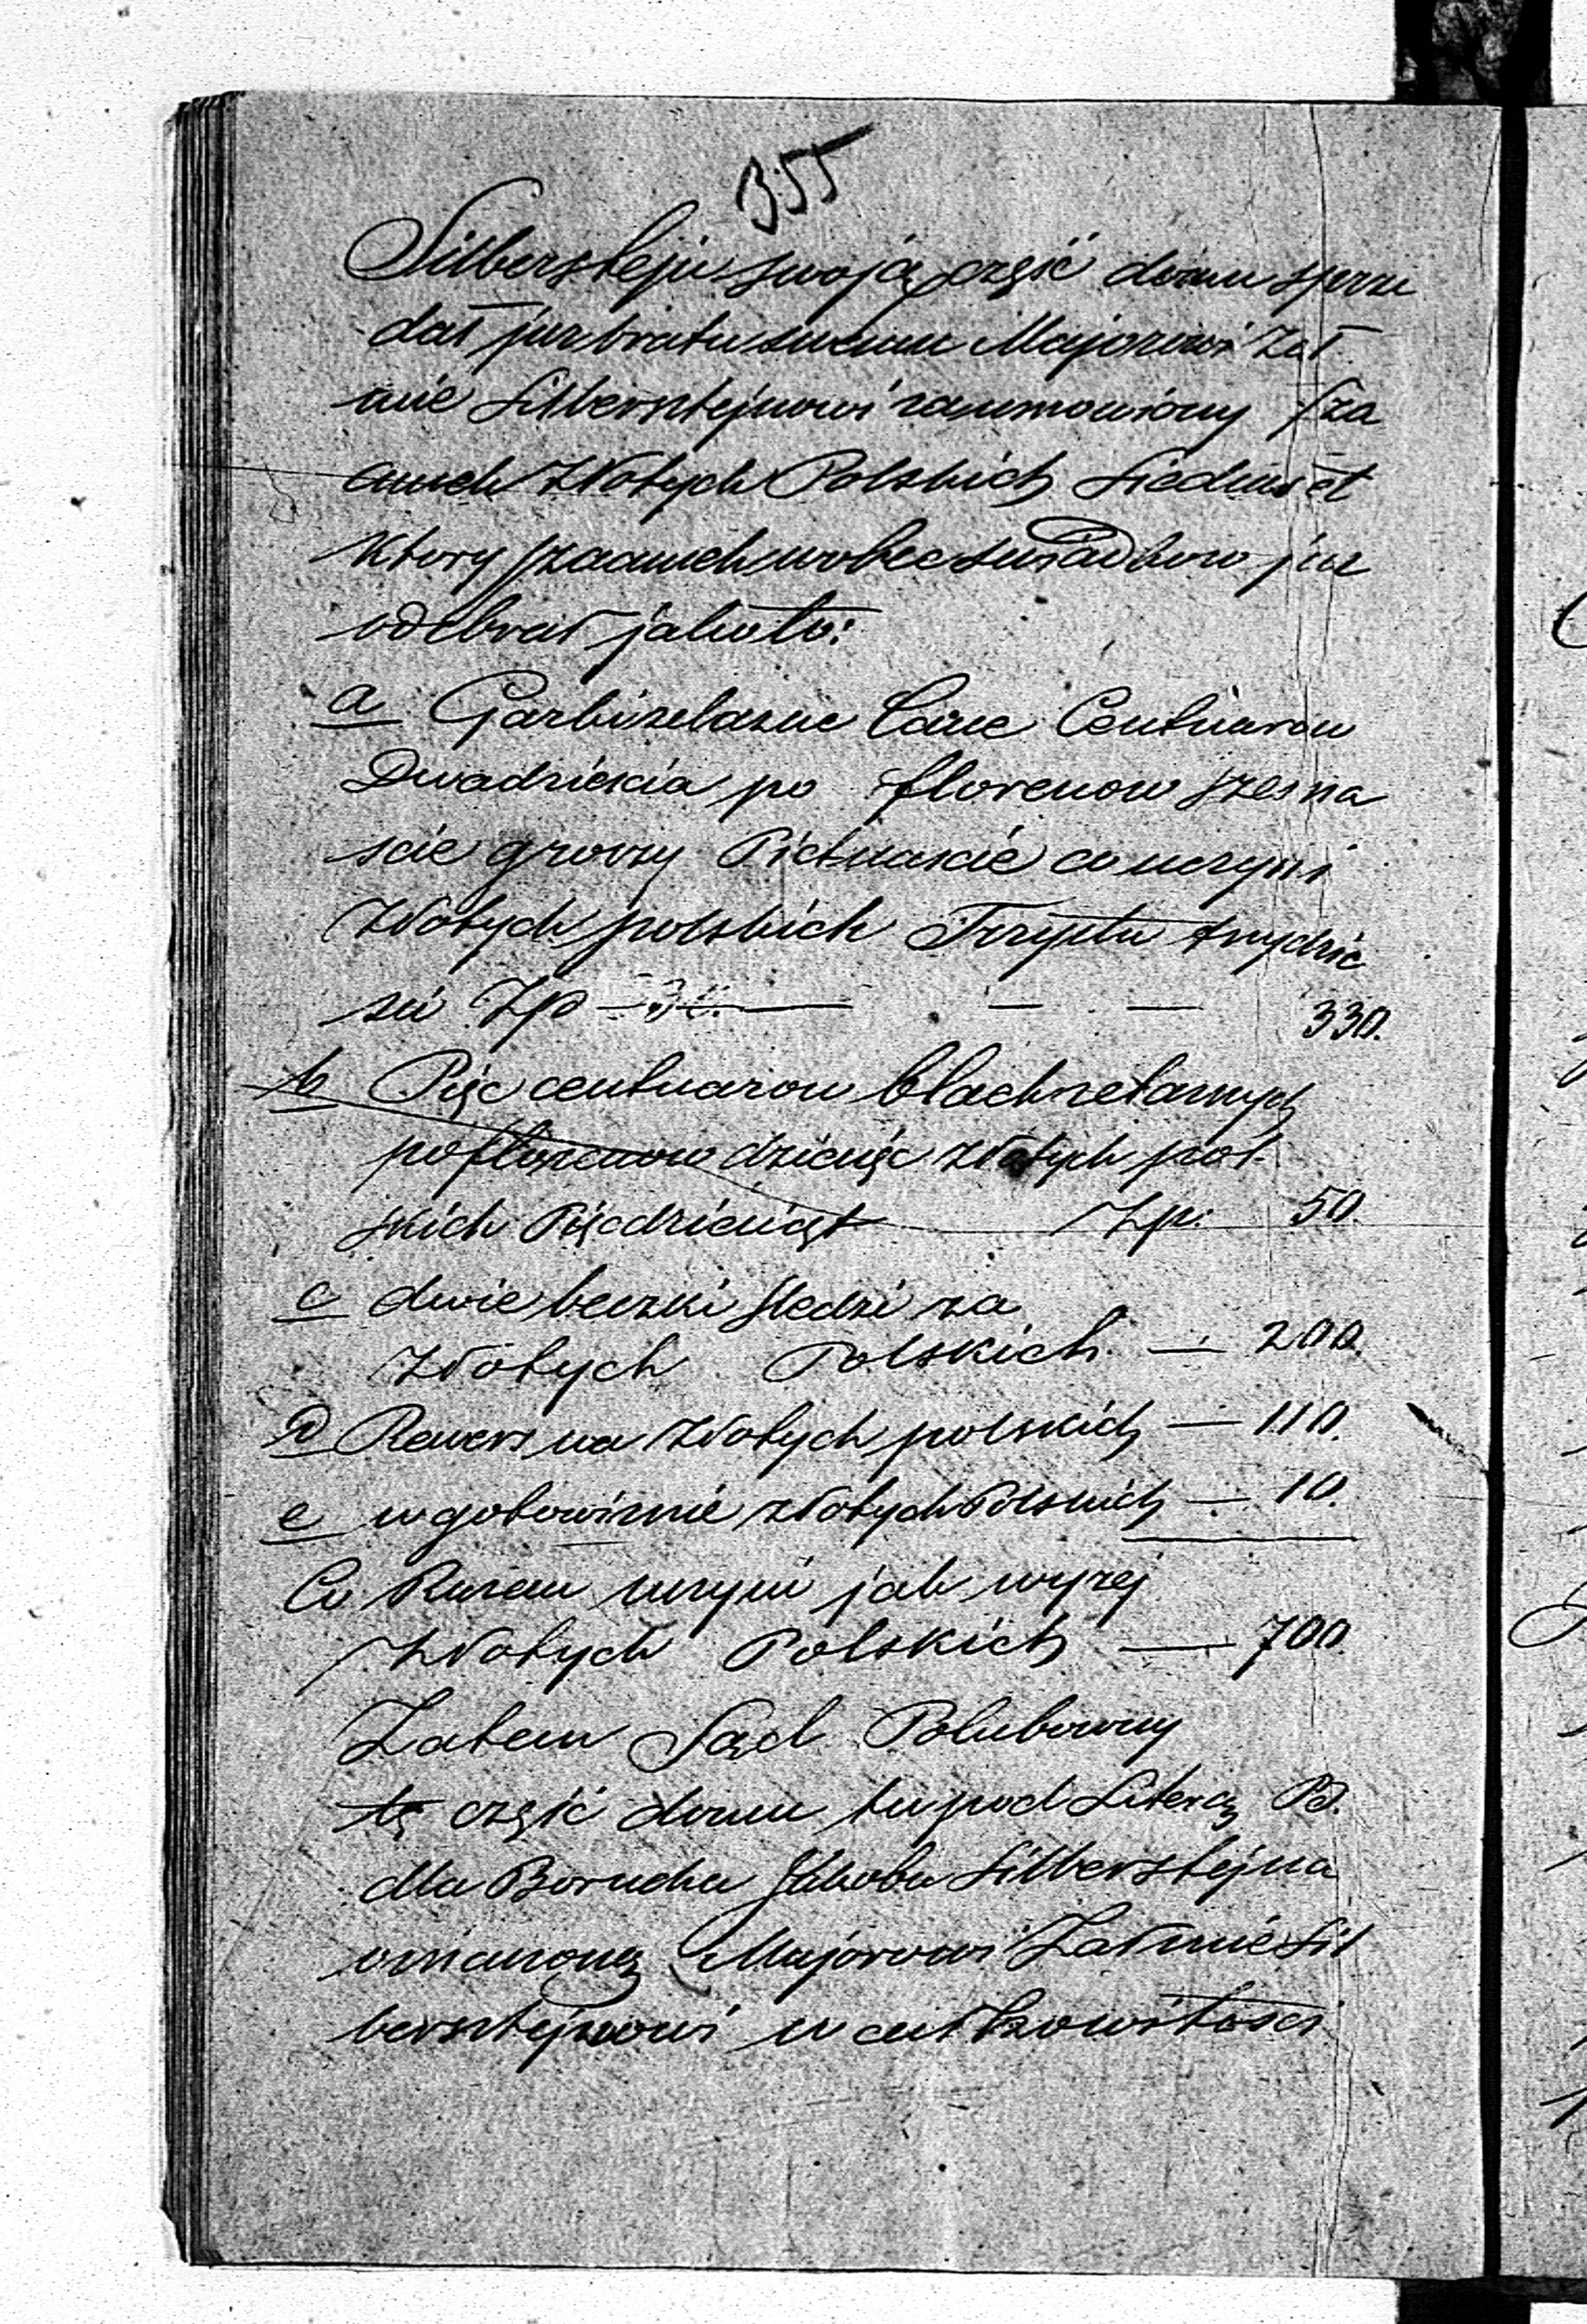 355
Silberstejn swoją część domu sprze
dał juz bratu swemu Majorowi Zał
mie Silbersztejnowi za umowiony sza
cunek Złotych Polskich Siedmset
Ktory szacunek wobec swiadkow juz
odebrał jakoto:
a Garki zelazne Lane Centnarow
Dwadziescia po florenow szesna
scie groszy Pietnascie co uczyni
Złotych polskich Trzysta trzydzie
sci Zp — — — 330.
b Pięc centnarow blach zelaznych
po florenow dziesięc złotych pol
skich Pięcdziesiąt Zp: 50.
c dwie beczki sledzi za
Złotych Polskich — 200.
d Rewers na Złotych polskich — 110.
e w gotowiznie złotych Polskich — 10.
Co Razem uczyni jak wyzej
Złotych Polskich — 700.
Zatem Sąd Polubowny
tę część domu tu pod Literą B.
dla Borucha Jakoba Silberstejna
oznaczoną Majorowi Załmie Sil
bersztejnowi w całkowitosci